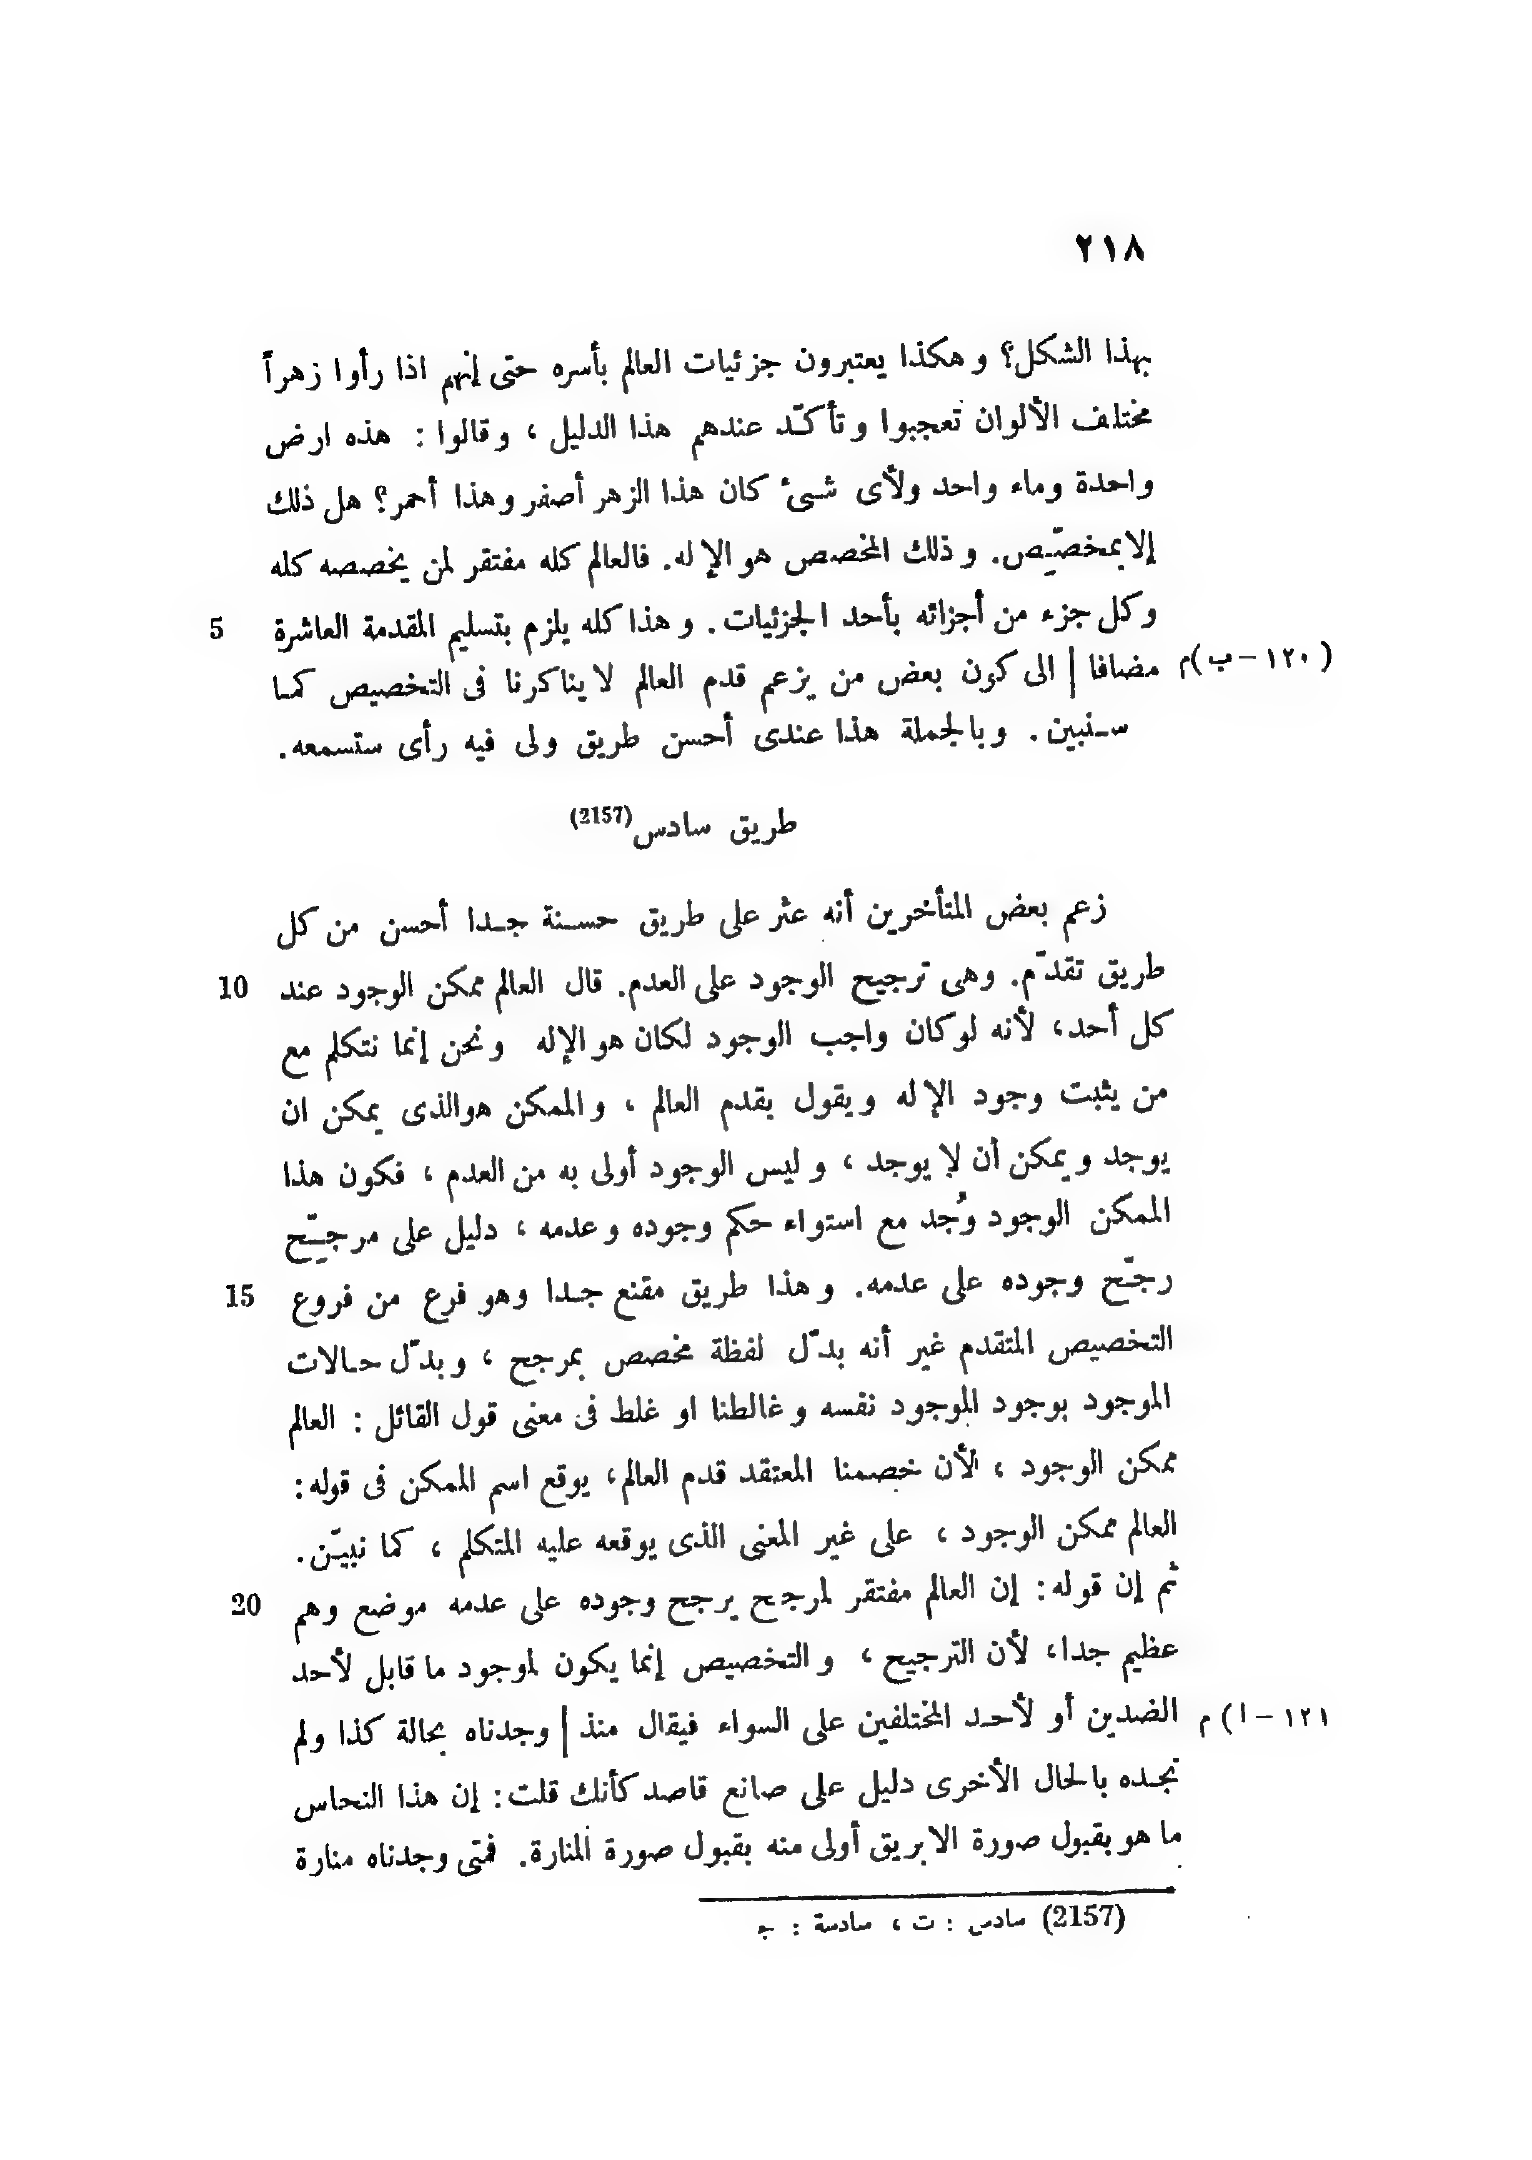 ٢١٨
بهذا الشكل؟ و هكذا يعتبرون جزئيات العالم بأسره حتى إنهم اذا رأوا زهراً
مختلف الألوان تعجبوا و تأكّد عندهم هذا الدليل ، و قالوا : هذه ارض
واحدة وماء واحد ولأى شىء كان هذا الزهر أصفر و هذا أحمر؟ هل ذلك
إلا بمخصّيص. و ذلك المخصص هو الإله. فالعالم كله مفتقر لمن يخصصه كله
5 وكل جزء من أجزائه بأحد الجزئيات . و هذا كله يلزم بتسليم المقدمة العاشرة
(١٢٠ – ب)م مضافا | الى كون بعض من يزعم قدم العالم لا يناكرنا فى التخصيص كما
سنبين . و بالجملة هذا عندى أحسن طريق ولى فيه رأى ستسمعه .
طريق سادس (2157)
زعم بعض المتأخرين أنه عثر على طريق حسنة جدا أحسن من كل
10 طريق تقدّم. وهى ترجيح الوجود على العدم. قال العالم ممكن الوجود عند
كل أحد، لأنه لوكان واجب الوجود لكان هو الإله و نحن إنما نتكلم مع
من يثبت وجود الإله و يقول بقدم العالم ، و الممكن هوالذى يمكن ان
يوجد و يمكن أن لا يوجد ، و ليس الوجود أولى به من العدم ، فكون هذا
الممكن الوجود وُجد مع استواء حكم وجوده و عدمه ، دليل على مرجّيح
15 رجّح وجوده على عدمه. و هذا طريق مقنع جدا وهو فرع من فروع
التخصيص المتقدم غير أنه بدّل لفظة مخصص بمرجح ، و بدّل حالات
الموجود بوجود الموجود نفسه و غالطنا او غلط فى معنى قول القائل : العالم
ممكن الوجود ، لأن خصمنا المعتقد قدم العالم، يوقع اسم الممكن فى قوله:
العالم ممكن الوجود ، على غير المعنى الذى يوقعه عليه المتكلم ، كما نبيّن.
20 ثم إن قوله: إن العالم مفتقر لمرجح يرجح وجوده على عدمه موضع وهم
عظيم جدا، لأن الترجيح ، و التخصيص إنما يكون لموجود ما قابل لأحد
١٢١ – ا) م الضدين أو لأحد المختلفين على السواء فيقال منذ | وجدناه بحالة كذا ولم
نجده بالحال الأخرى دليل على صانع قاصد كأنك قلت: إن هذا النحاس
ما هو بقبول صورة الابريق أولى منه بقبول صورة المنارة. فمتى وجدناه منارة
(2157) سادس : ت ، سادسة : ج